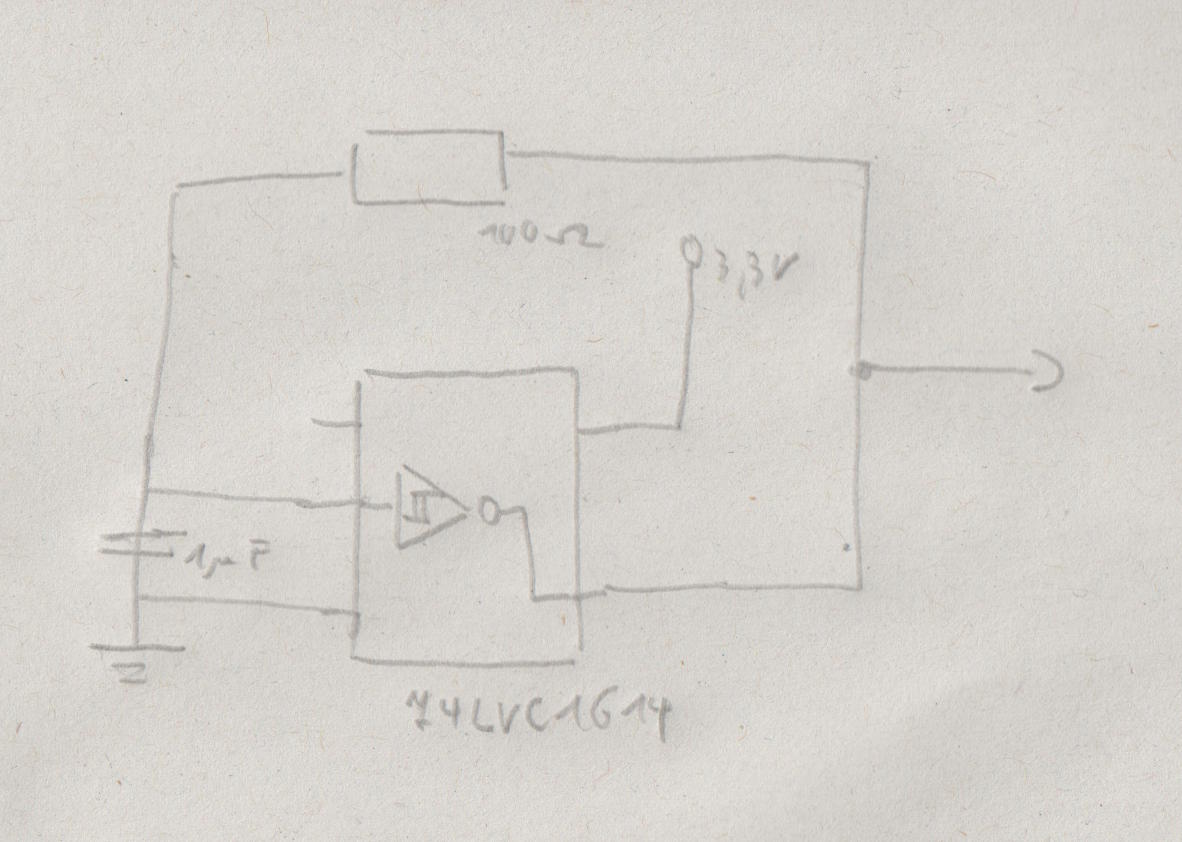 100Ω
3,3V
1µF
74LVC1G14